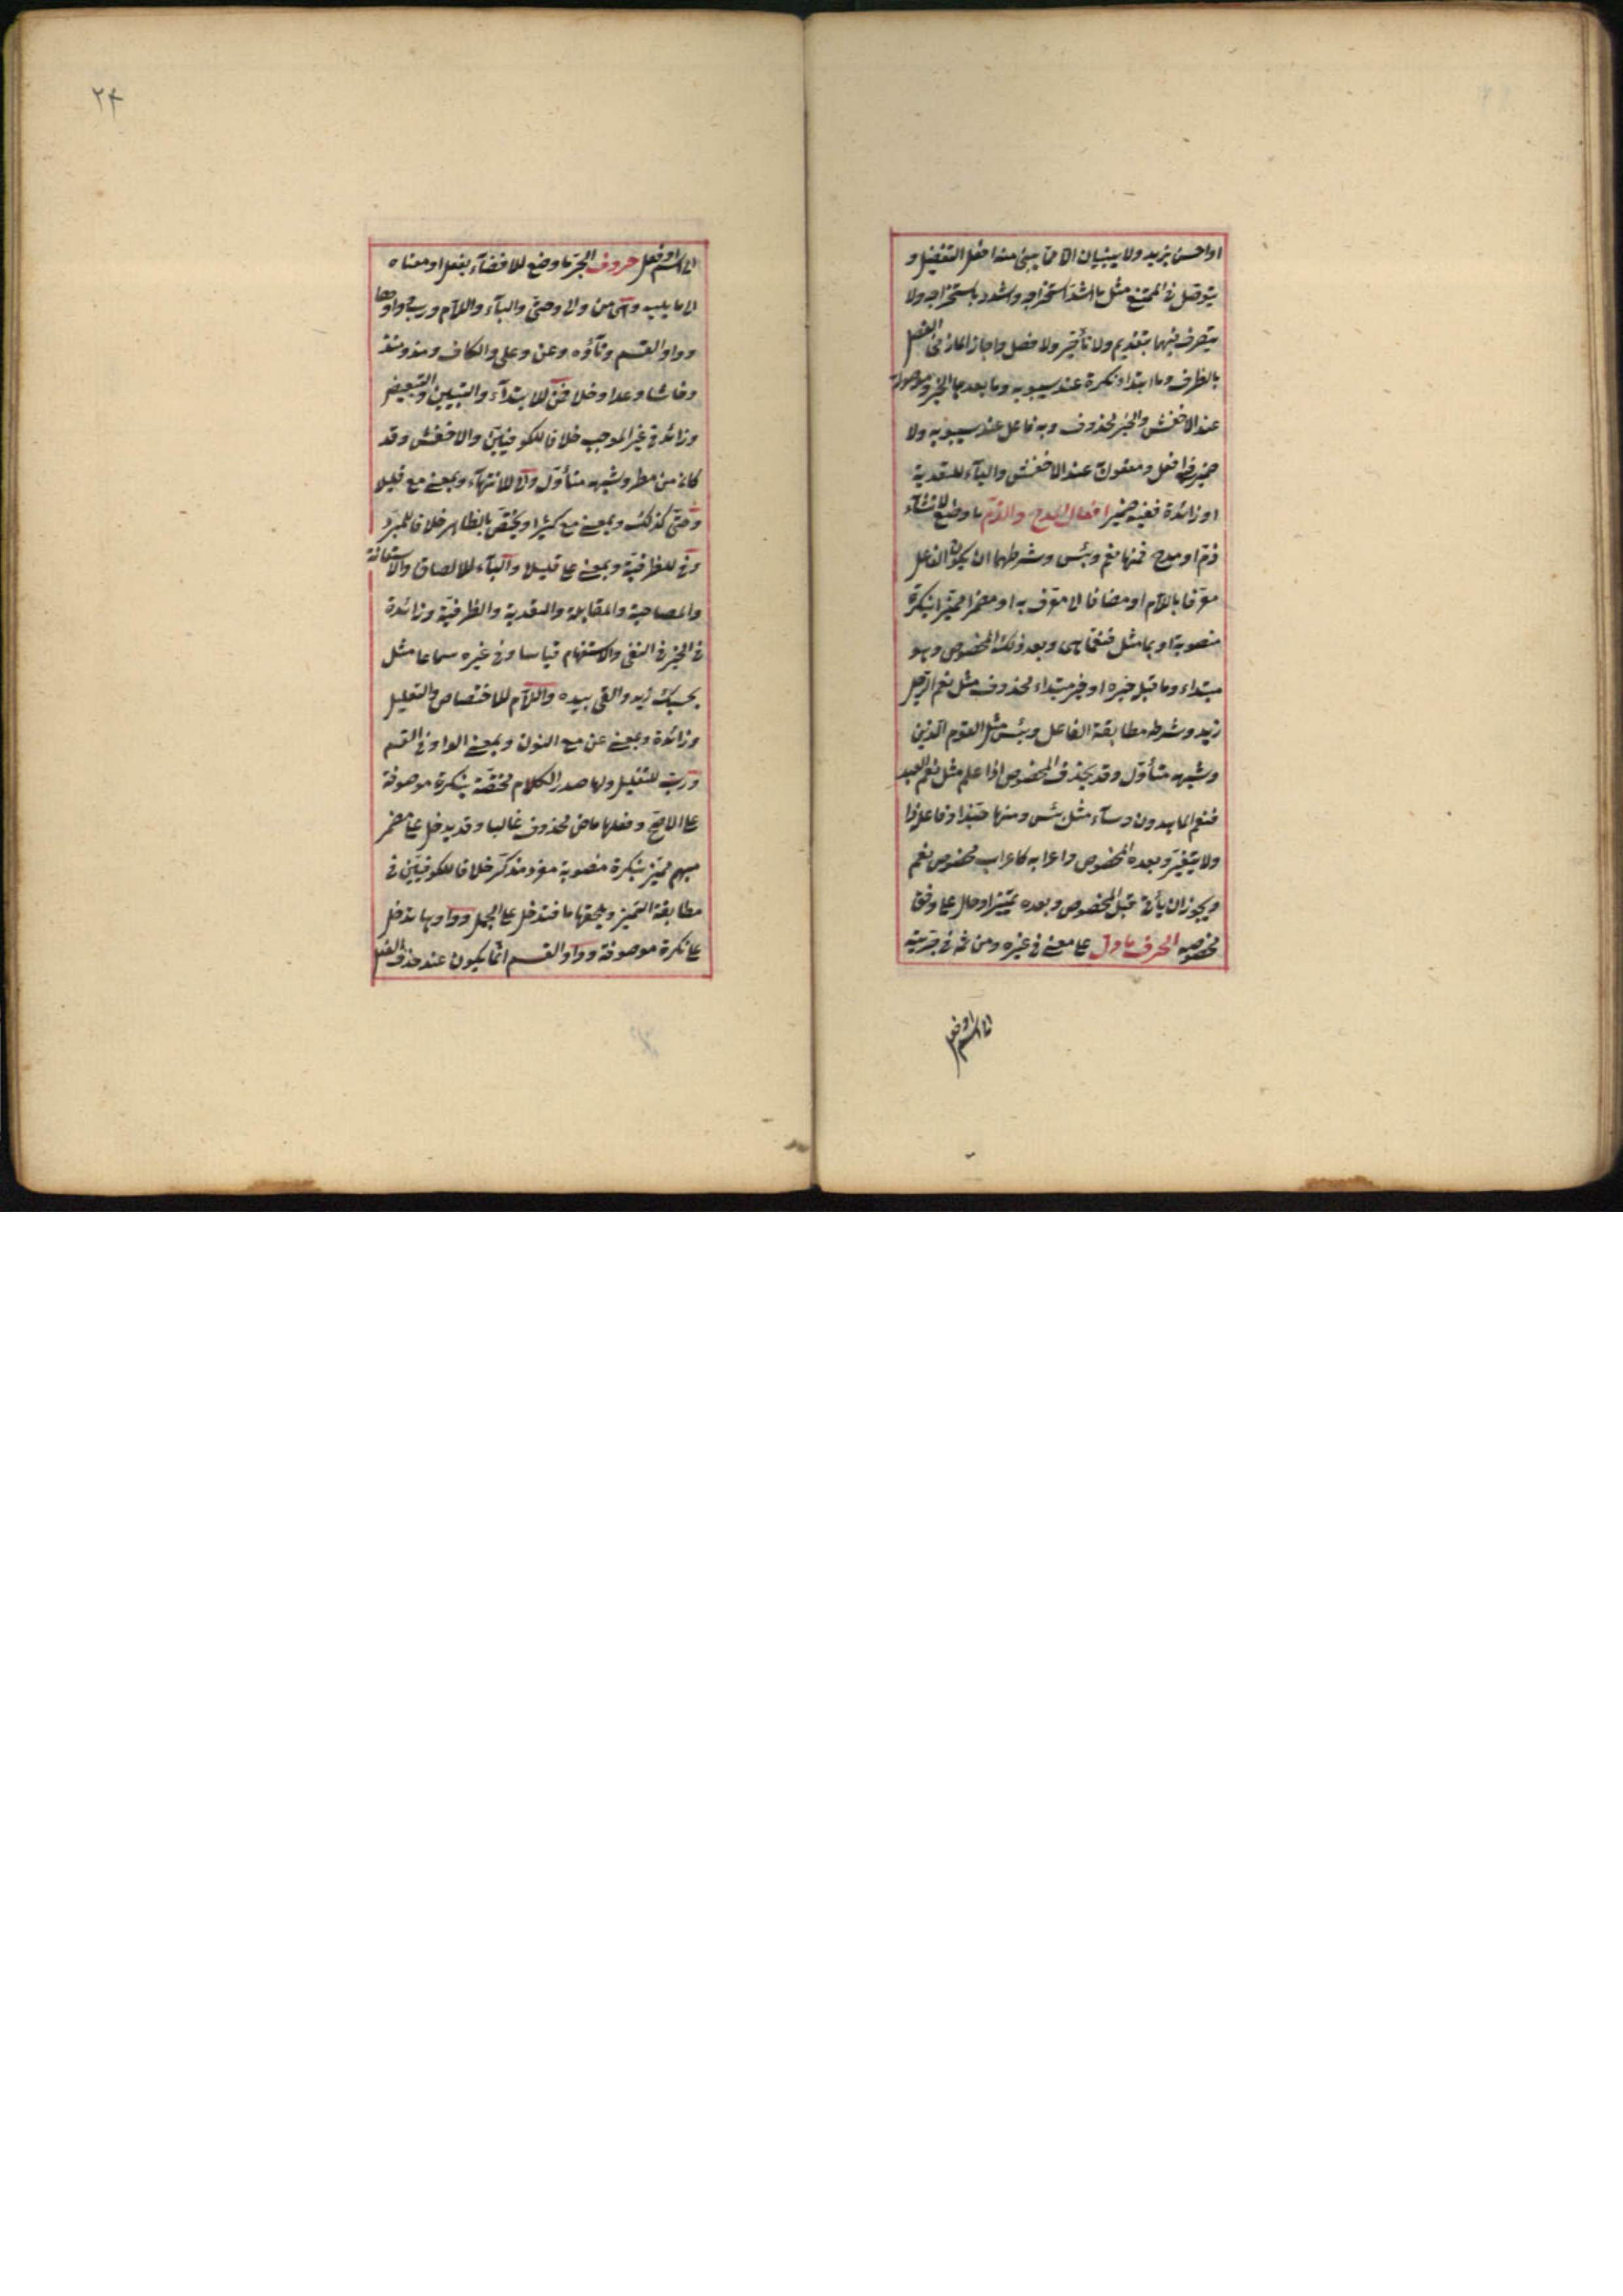 او احسن بزيد ولا يبنيان الا مما يبنى منه افعل التفضيل و
يتوصل فى الممتنع مثل ما اشدّ استخراجه واشدد باستخراجه ولا
يتصرف فيهما بتقديم ولا تأخير ولا فصل واجاز المازنى الفصل
بالظرف وما ابتداء نكرة عند سيبويه وما بعدها الخبر وموصولة
عند الاخفش والخبر محذوف وبه فاعل عند سيبويه ولا
ضمير فى افعل ومفعول عند الاخفش والباء للتعدية
او زائدة ففيه ضمير افعال المدح والذم ما وضع لانشآء
ذم او مدح فمنها نعم وبئس وشرطهما ان يكون الفاعل
معرّفا باللام او مضافا الى معرّف به او مضمرا مميّزا بنكرة
منصوبة او بما مثل فنعمّا هى وبعد ذلك المخصوص وهو
مبتداء وما قبل خبره او خبر مبتداء محذوف مثل نعم الرّجل
زيد وشرطه مطابقة الفاعل وبئس مثل القوم الّذين
وشبهه متأوّل وقد يحذف المخصوص اذا علم مثل نعم العبد
فنعم الماهدون وسآء مثل بئس ومنها حبّذا وفاعل ذا
ولا يتغيّر وبعده المخصوص واعرابه كاعراب مخصوص نعم
ويجوز ان يأتى قبل المخصوص وبعده تمييز او حال على وفق
مخصوصه الحرف ما دل على معنى فى غيره ومن ثم فى جزئيته
الى اسم او فعل
٢٤
الى اسم او فعل حروف الجر ما وضع للافضآء بفعل او معناه
الى ما يليه وهى من والى وحتى والبآء واللام ورب وواوها
وواو القسم وتآؤه وعن وعلى والكاف ومذ ومنذ
وحاشا وعدا وخلا فمن للابتدآء والتبيين والتبعيض
وزائدة فى غير الموجب خلافا للكوفيّين والاخفش وقد
كان من مطر وشبهه متأوّل والى للانتهآء وبمعنى مع قليلا
وحتّى كذلك وبمعنى مع كثيرا ويختصّ بالظاهر خلافا للمبرّد
وفى للظرفيّة وبمعنى على قليلا والبآء للالصاق والاستعانة
والمصاحبة والمقابلة والتعدية والظرفيّة وزائدة
فى الخبر فى النفى والاستفهام قياسا وفى غيره سماعا مثل
بحسبك زيد والقى بيده واللام للاختصاص والتعليل
وزائدة وبمعنى عن مع القول وبمعنى الواو فى القسم
وربّ للتقليل ولها صدر الكلام مختصّة بنكرة موصوفة
على الاصحّ وفعلها ماض محذوف غالبا وقد يدخل على مضمر
مبهم مميّز بنكرة منصوبة مفرد مذكّر خلافا للكوفيّين فى
مطابقة التمييز ويلحقها ما فتدخل على الجمل وواوها تدخل
على نكرة موصوفة وواو القسم انّما يكون عند حذف الفعل